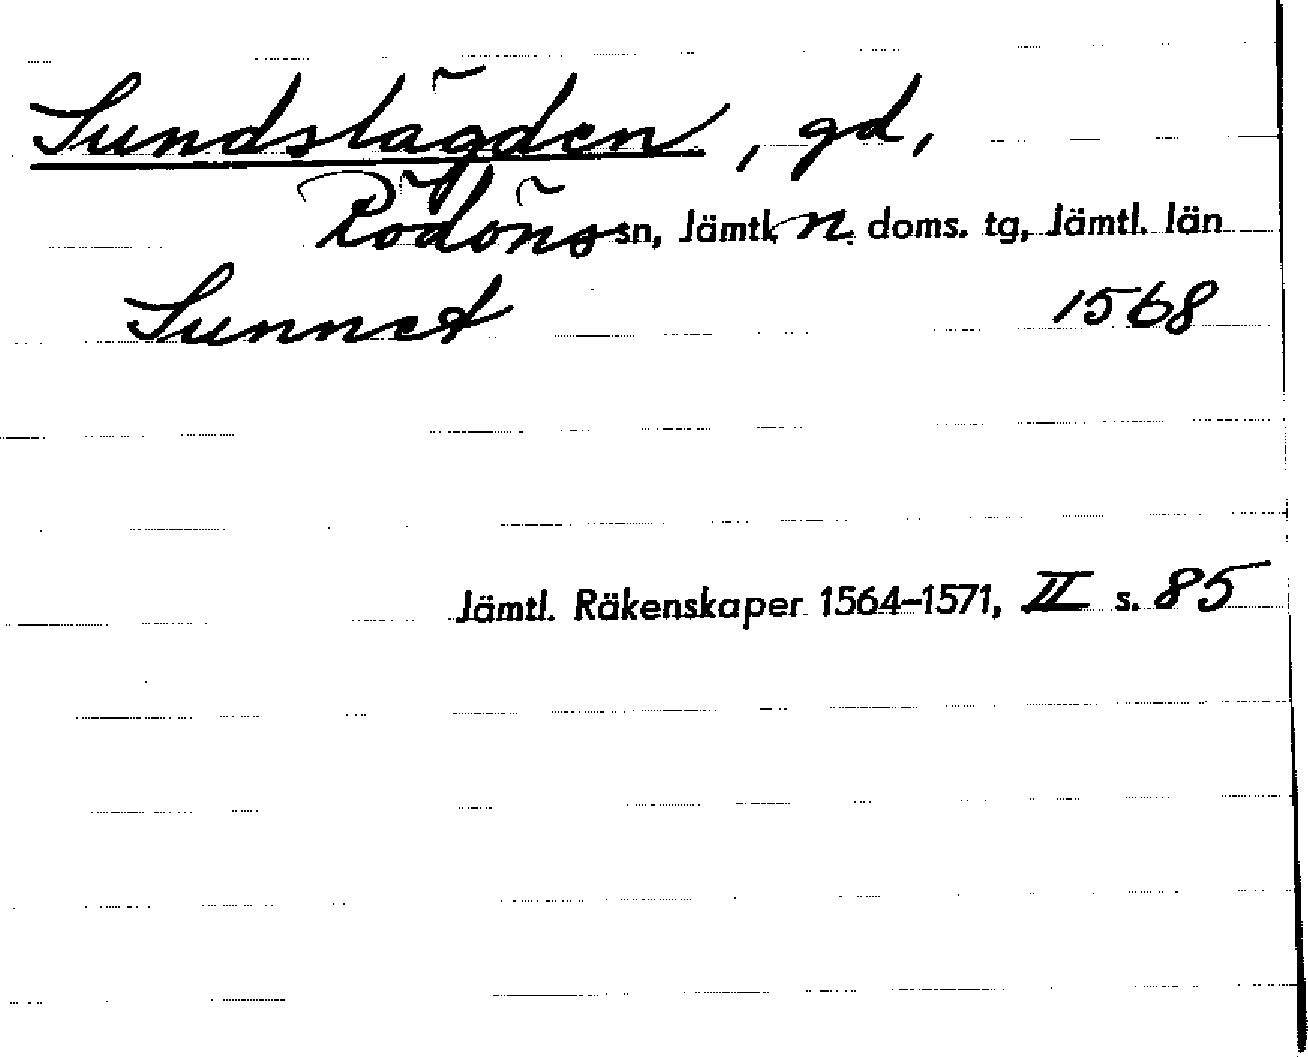 Sundslägden, gd,
Rödöns sn, Jämtl. n. doms. tg, Jämtl. län
Sunnet 1568
Jämtl. Räkenskaper 1564-1571, II s. 85